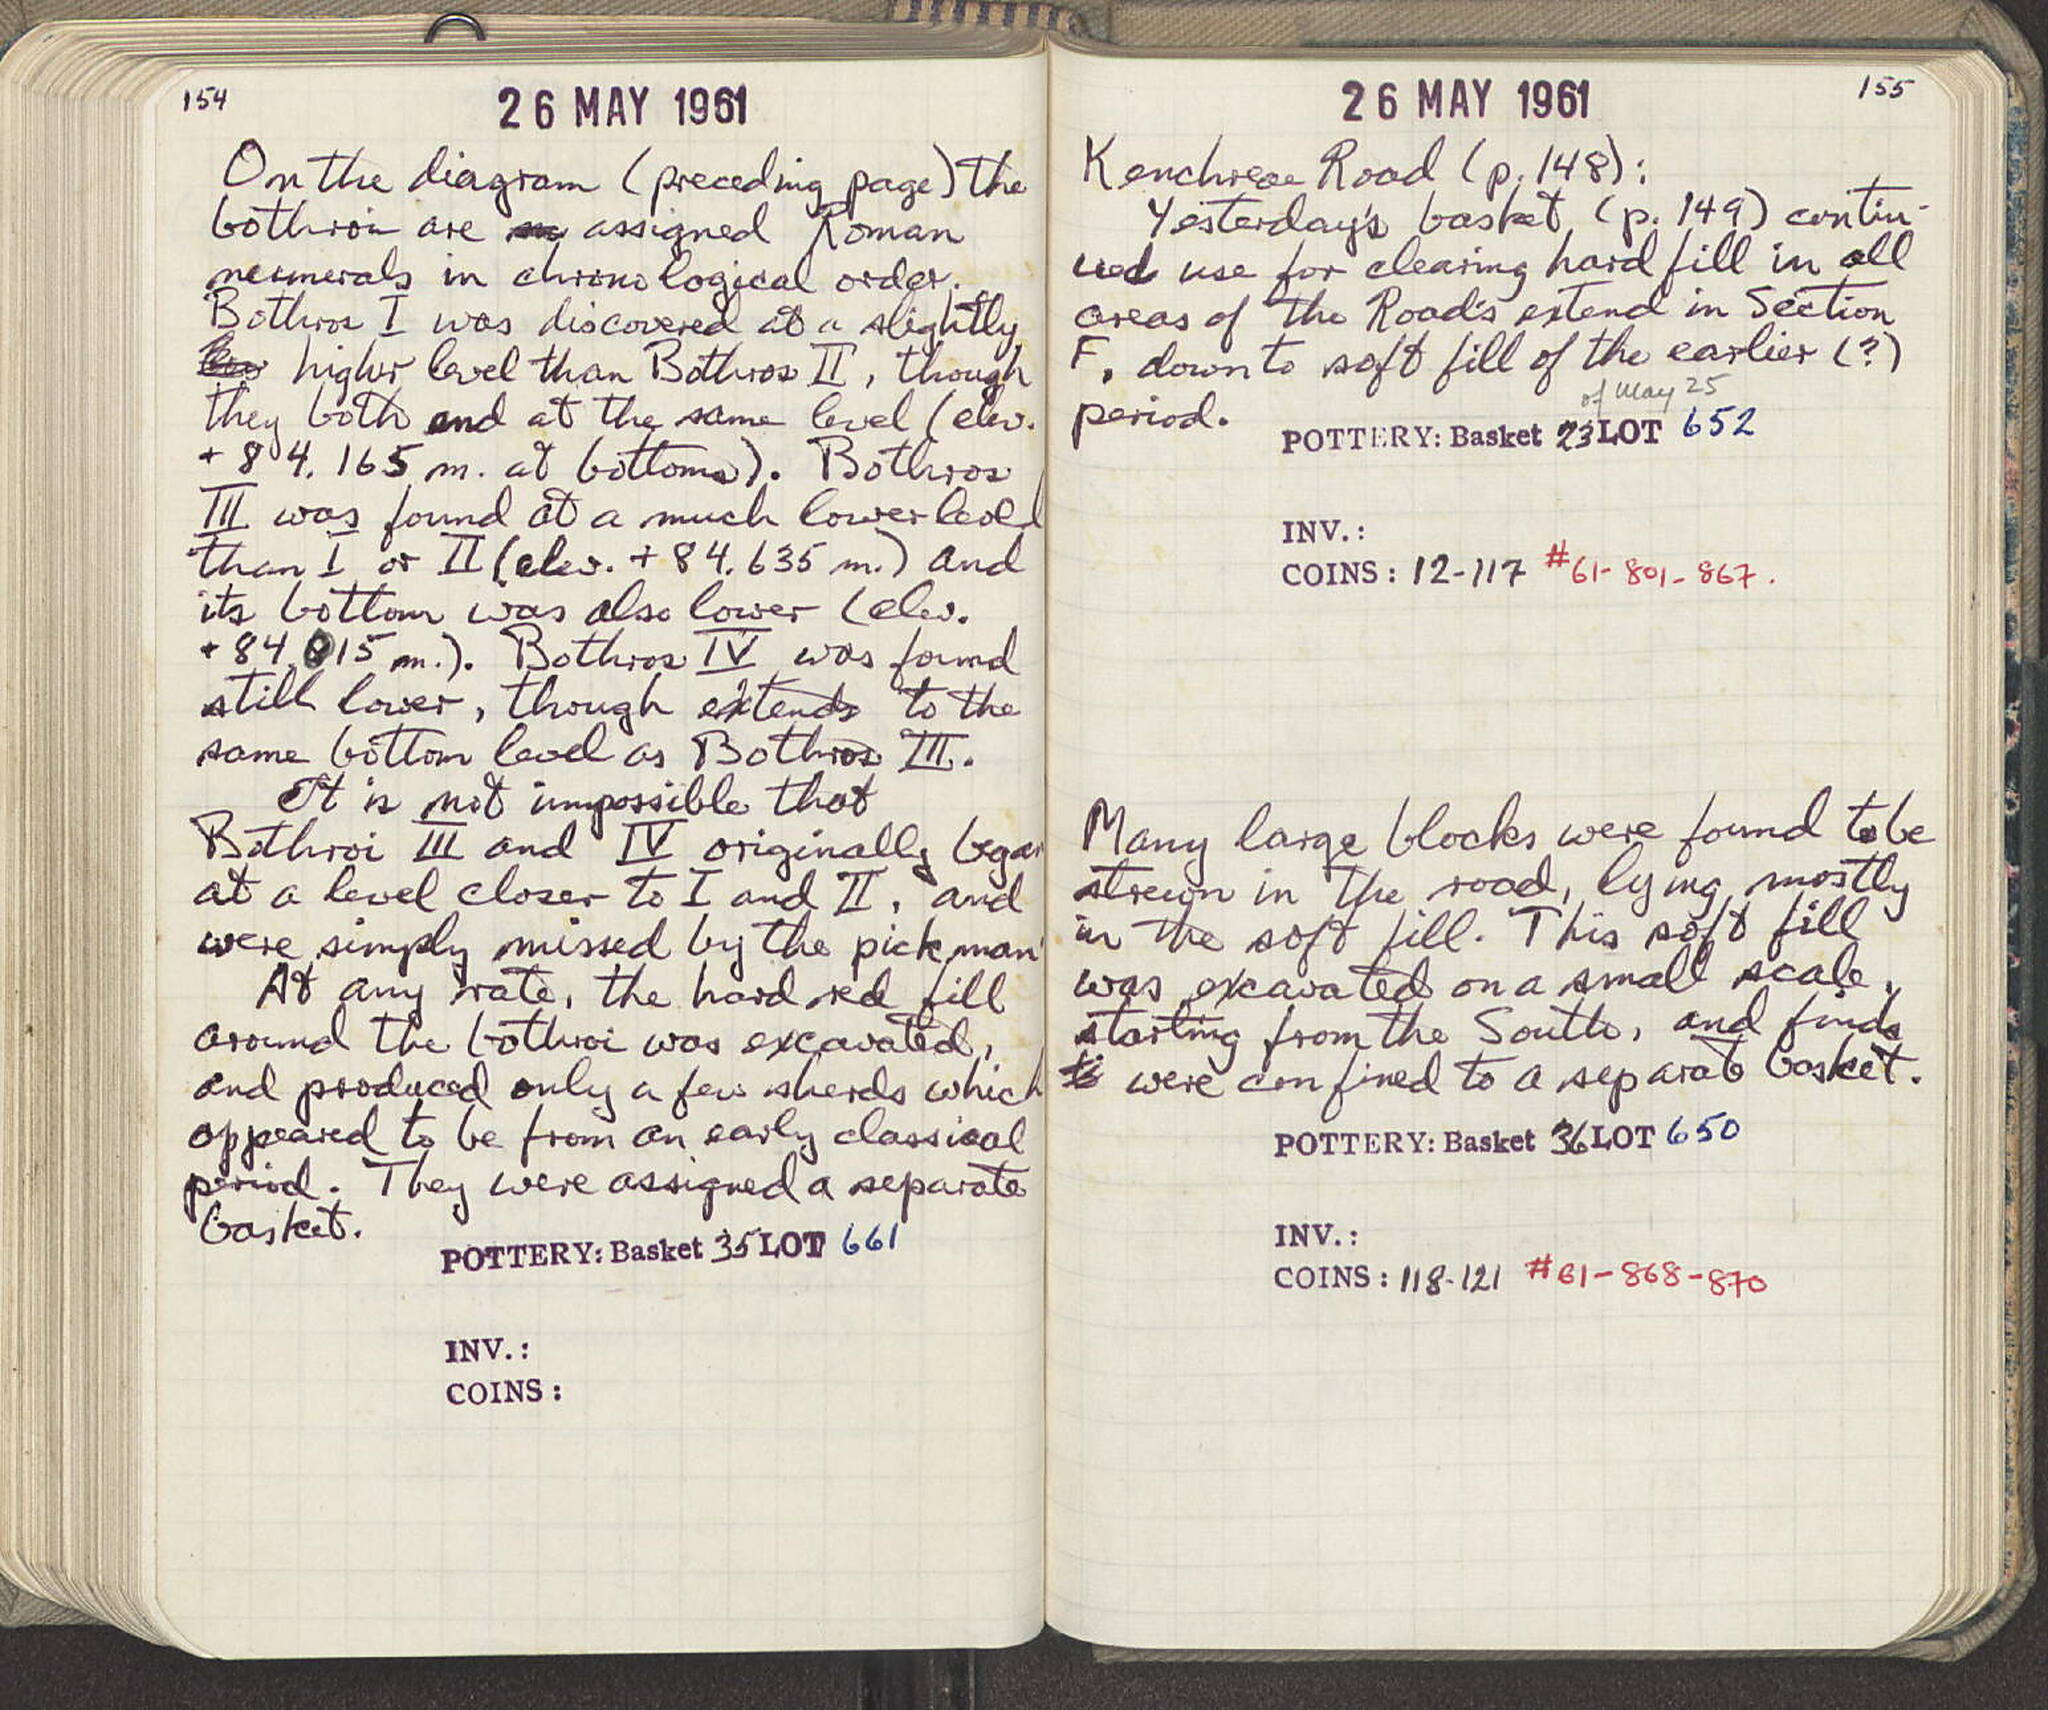 154
26 MAY 1961
On the diagram (preceding page) the
bothroi are assigned Roman
neumerals in chronological order.
Bothros I was discovered at a slightly
higher level than Bothros II, though
they both end at the same level (elev.
+84.165 m. at bottoms). Bothros
III was found at a much lower level
than I or II (elev. +84.635 m.) and
its bottom was also lower (elev.
+84.015 m.). Bothros IV was found
still lower, though extends to the
same bottom level as Bothros III.
It is not impossible that
Bothroi III and IV originally began
at a level closer to I and II, and
were simply missed by the pickman.
At any rate, the hard red fill
around the bothroi was excavated,
and produced only a few sherds which
appeared to be from an early classical
period. They were assigned a separate
basket.
POTTERY: Basket 35 LOT 661
INV.:
COINS:
155
26 MAY 1961
Kenchreae Road (p. 148):
Yesterday's basket (p. 149) contin-
ued use for clearing hard fill in all
areas of the Road's extend in Section
F, down to soft fill of the earlier (?)
period.
of May 25
POTTERY: Basket 23 LOT 652
INV.:
COINS: 12-117 #61-801-867.
Many large blocks were found to be
strewn in the road, lying mostly
in the soft fill. This soft fill
was excavated on a small scale,
starting from the South, and finds
were confined to a separate basket.
POTTERY: Basket 36 LOT 650
INV.:
COINS: 118-121 #61-868-870